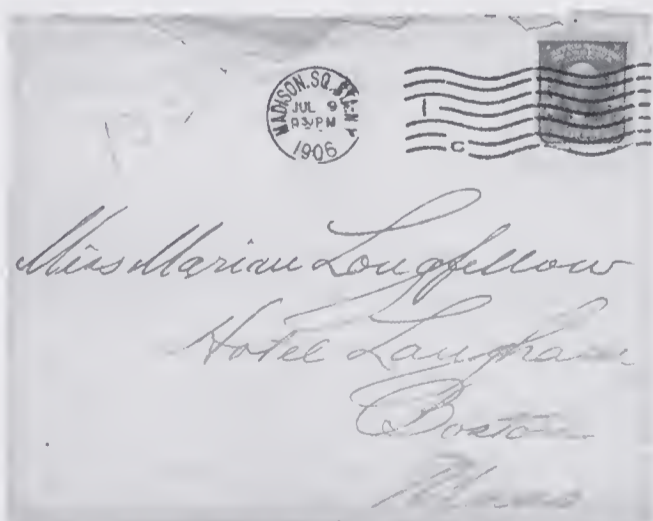 MADISON.SQ.STA.N.Y.
JUL 9
3 PM
1906
1
C
Miss Marian Longfellow
Hotel Langham
Boston
Mass